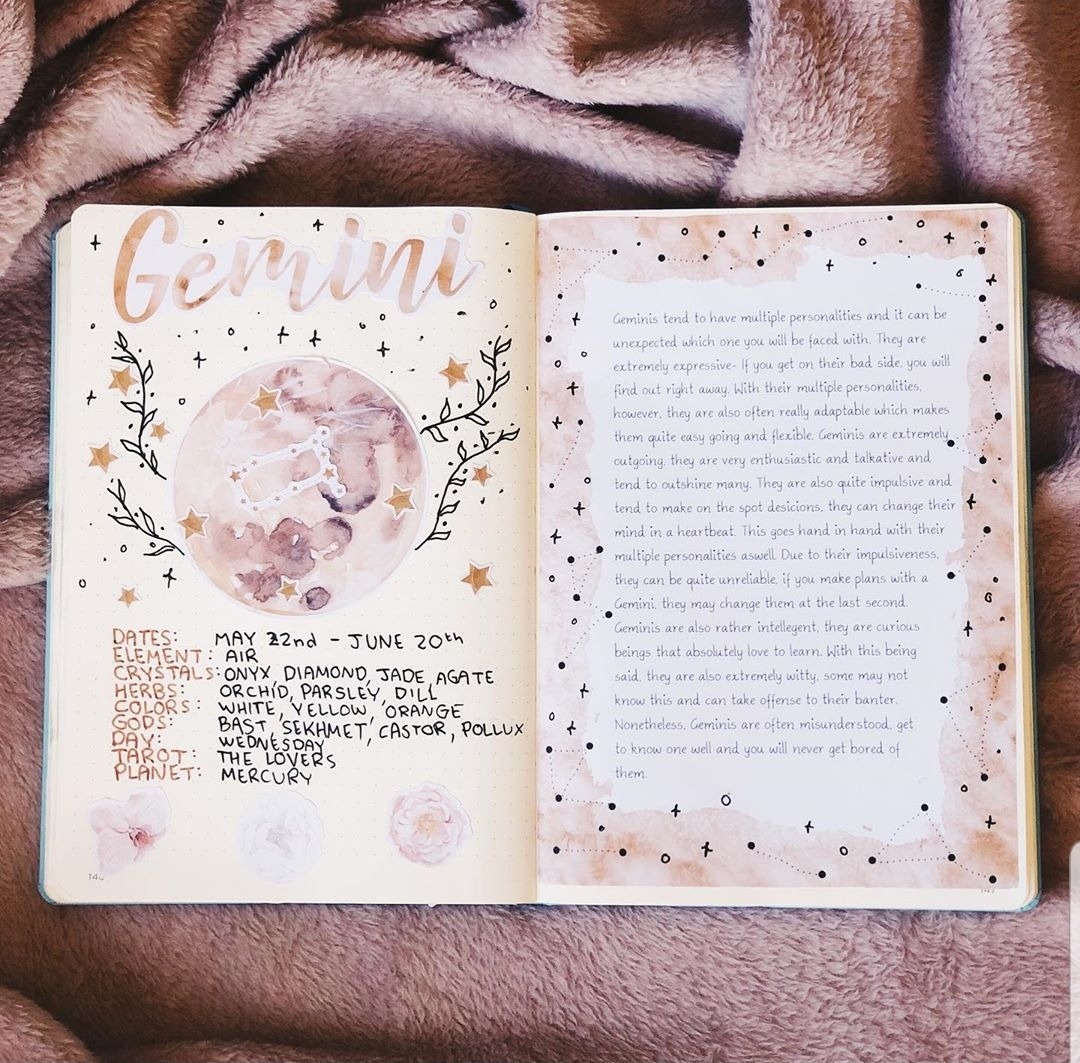 Gemini
DATES: MAY 22nd - JUNE 20th
ELEMENT: AIR
CRYSTALS: ONYX, DIAMOND, JADE, AGATE
HERBS: ORCHID, PARSLEY, DILL
COLORS: WHITE, YELLOW, ORANGE
GODS: BAST, SEKHMET, CASTOR, POLLUX
DAY: WEDNESDAY
TAROT: THE LOVERS
PLANET: MERCURY
Geminis tend to have multiple personalities and it can be
unexpected which one you will be faced with. They are
extremely expressive- If you get on their bad side, you will
find out right away. With their multiple personalities,
however, they are also often really adaptable which makes
them quite easy going and flexible. Geminis are extremely
outgoing, they are very enthusiastic and talkative and
tend to outshine many. They are also quite impulsive and
tend to make on the spot desicions, they can change their
mind in a heartbeat. This goes hand in hand with their
multiple personalities aswell. Due to their impulsiveness,
they can be quite unreliable, if you make plans with a
Gemini, they may change them at the last second.
Geminis are also rather intellegent, they are curious
beings that absolutely love to learn. With this being
said, they are also extremely witty, some may not
know this and can take offense to their banter.
Nonetheless, Geminis are often misunderstood, get
to know one well and you will never get bored of
them.